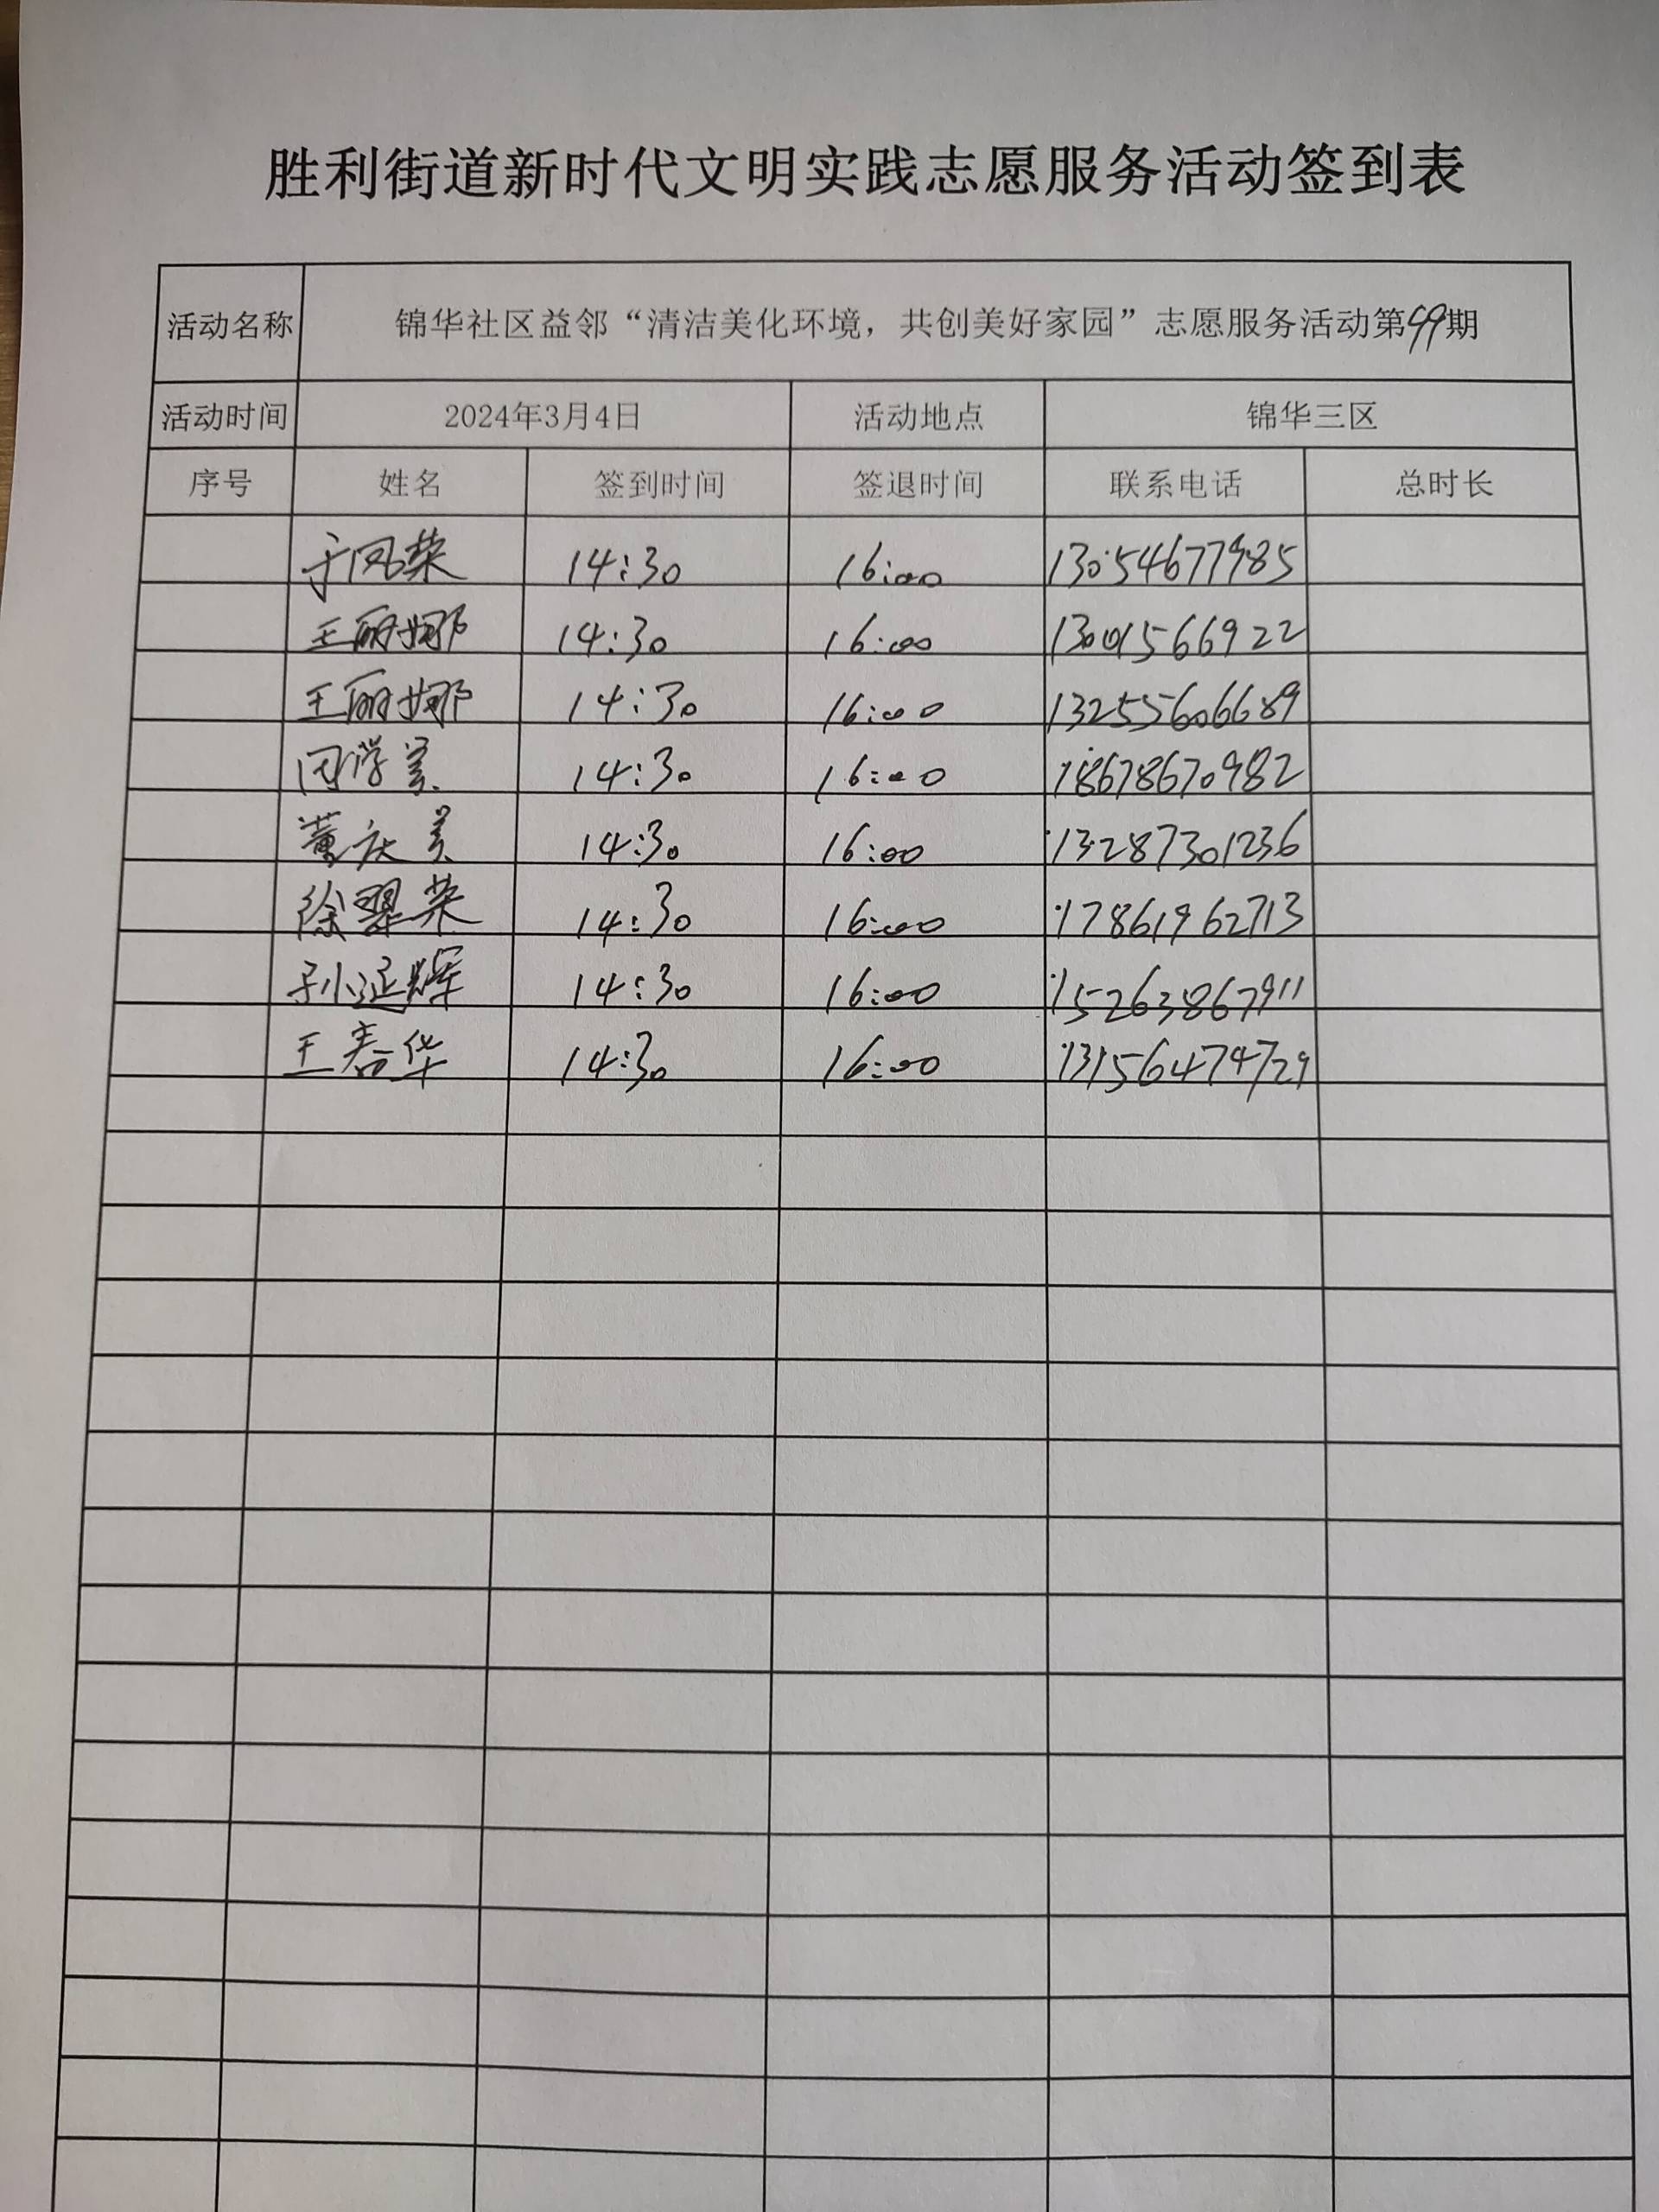 胜利街道新时代文明实践志愿服务活动签到表
活动名称 锦华社区益邻“清洁美化环境，共创美好家园”志愿服务活动第99期
活动时间 2024年3月4日 活动地点 锦华三区
序号 姓名 签到时间 签退时间 联系电话 总时长
于凤荣 14:30 16:00 13054677985
王丽娜 14:30 16:00 13001566922
王丽娜 14:30 16:00 13255606689
闫学美 14:30 16:00 18678670982
董庆美 14:30 16:00 13287301236
徐翠荣 14:30 16:00 17861962713
孙延辉 14:30 16:00 15263867911
王春华 14:30 16:00 13156474729